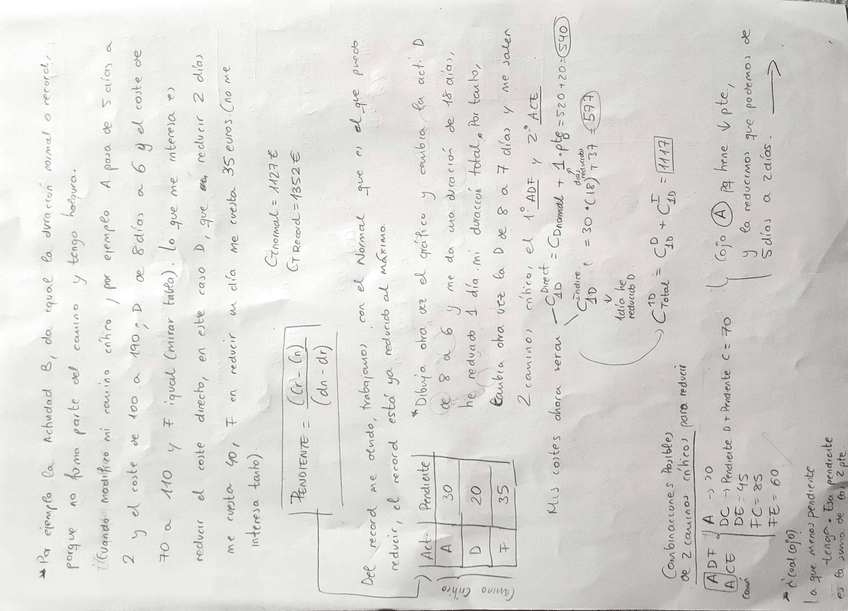 * Por ejemplo la Actividad B, da igual la duración normal o record,
porque no forma parte del camino y tengo holgura.
Cuando modifico mi camino crítico, por ejemplo A pasa de 5 días a
2 y el coste de 100 a 190; D de 8 días a 6 y el coste de
70 a 110 y F igual (mirar tabla). Lo que me interesa es
reducir el coste directo, en este caso D, que reducir 2 días
me cuesta 40, F en reducir un día me cuesta 35 euros (no me
interesa tanto).
CT normal = 1127€
CT Record = 1352€
PENDIENTE = (Cr - Cn) / (dn - dr)
Del record me olvido, trabajamos con el Normal que es el que puedo
reducir, el record está ya reducido al máximo.
Camino Crítico
Act. Pendiente
A 30
D 20
F 35
* Dibuja otra vez el gráfico y cambia la acti. D
de 8 a 6 y me da una duración de 18 días,
he reducido 1 día mi duración total. Por tanto,
cambia otra vez la D de 8 a 7 días y me salen
2 caminos críticos, el 1º ADF y 2º ACE
Mis costes ahora serán - C 1D Direct = C Dnormal + 1·pte = 520+20 = 540
días reducidos
C 1D Indire = 30·(18) + 37 = 577
1 día he
reducido D.
C Total 1D = C 1D D + C 1D I = 1117
Combinaciones Posibles
de 2 caminos críticos para reducir
ADF
ACE
Común
A → 30
DC → Pendiente D + Pendiente C = 70
DE = 45
FC = 85
FE = 60
Cojo A pq tiene ↓ pte,
y la reducimos que podemos de
5 días a 2 días. →
* ¿cual cojo?
La que menos pendiente
tenga. Esa pendiente
es la suma de las 2 pte